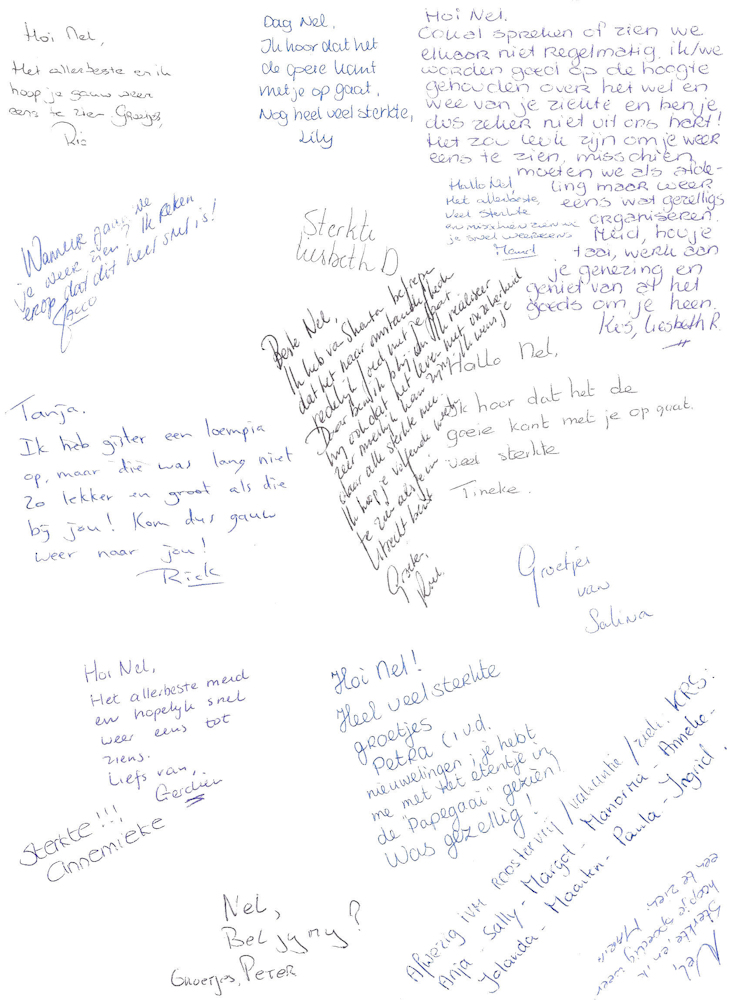 Hoi Nel,
Het allerbeste en ik
hoop je gauw weer
eens te zien Groetjes,
Ria
Dag Nel,
Ik hoor dat het
de goeie kant
met je op gaat.
Nog heel veel sterkte,
Lily
Hoi Nel.
Ookal spreken of zien we
elkaar niet regelmatig. ik/we
worden goed op de hoogte
gehouden over het wel en
wee van je ziekte en ben je
dus zeker niet uit ons hart!
Het zou leuk zijn om je weer
eens te zien, misschien
moeten we als afde-
ling maar weer
eens wat gezelligs
organiseren.
Meid, hou je
taai, werk aan
je genezing en
geniet van al het
goeds om je heen.
Kus, Liesbeth R.
Hallo Nel
Het allerbeste,
veel sterkte
en misschien zien we
je snel weer eens
Maud
Wanneer gaan we
je weer zien? Ik reken
erop dat dit heel snel is!
Jacco
Sterkte
Liesbeth D
Beste Nel,
Ik heb van Shanta begrepen
dat het naar omstandigheden
redelijk goed met je gaat.
Daar ben ik blij om. Ik realiseer
mij ook dat het leven met onzekerheid
zeer moeilijk kan zijn. Ik wens je
daar alle sterkte mee.
Ik hoop je volgende week
te zien als je in
Utrecht bent
Groeten,
Roel
Hallo Nel,
Ik hoor dat het de
goeie kant met je op gaat.
veel sterkte
Tineke.
Tanja.
Ik heb gister een loempia
op, maar die was lang niet
zo lekker en groot als die
bij jou! Kom dus gauw
weer naar jou!
Rick
Groetjes
van
Salina
Hoi Nel,
Het allerbeste meid
en hopelijk snel
weer eens tot
ziens.
Liefs van,
Gerdien
Hoi Nel!
Heel veel sterkte
groetjes
Petra (1 v.d.
nieuwelingen; je hebt
me met het etentje in
de "Papegaai" gezien)
Was gezellig!
Sterkte!!!
Annemieke
Afwezig ivm roostervrij/vakantie/ziek: KRS:
Anja - Sally - Margot - Manorma - Anneke -
Jolanda - Maarten - Paula - Ingrid.
Nel,
Bel jy ny?
Groetjes, Peter
Nel,
Sterkte, en ik
hoop je spoedig weer
een te zien. Maria